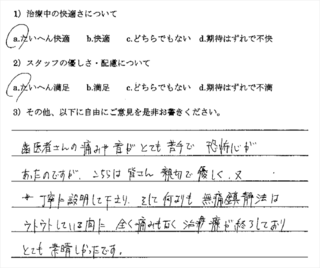 1）治療中の快適さについて
a.たいへん快適　b.快適　c.どちらでもない　d.期待はずれで不快
2）スタッフの優しさ・配慮について
a.たいへん満足　b.満足　c.どちらでもない　d.期待はずれで不満
3）その他、以下に自由にご意見を是非お書きください。
歯医者さんの痛みや音がとても苦手で 恐怖心が
あったのですが、こちらは皆さん 親切で優しく、又
丁寧に説明して下さり、そして何よりも 無痛鎮静法は
ウトウトしている間に 全く痛みもなく治療が終了しており
とても素晴しかったです。